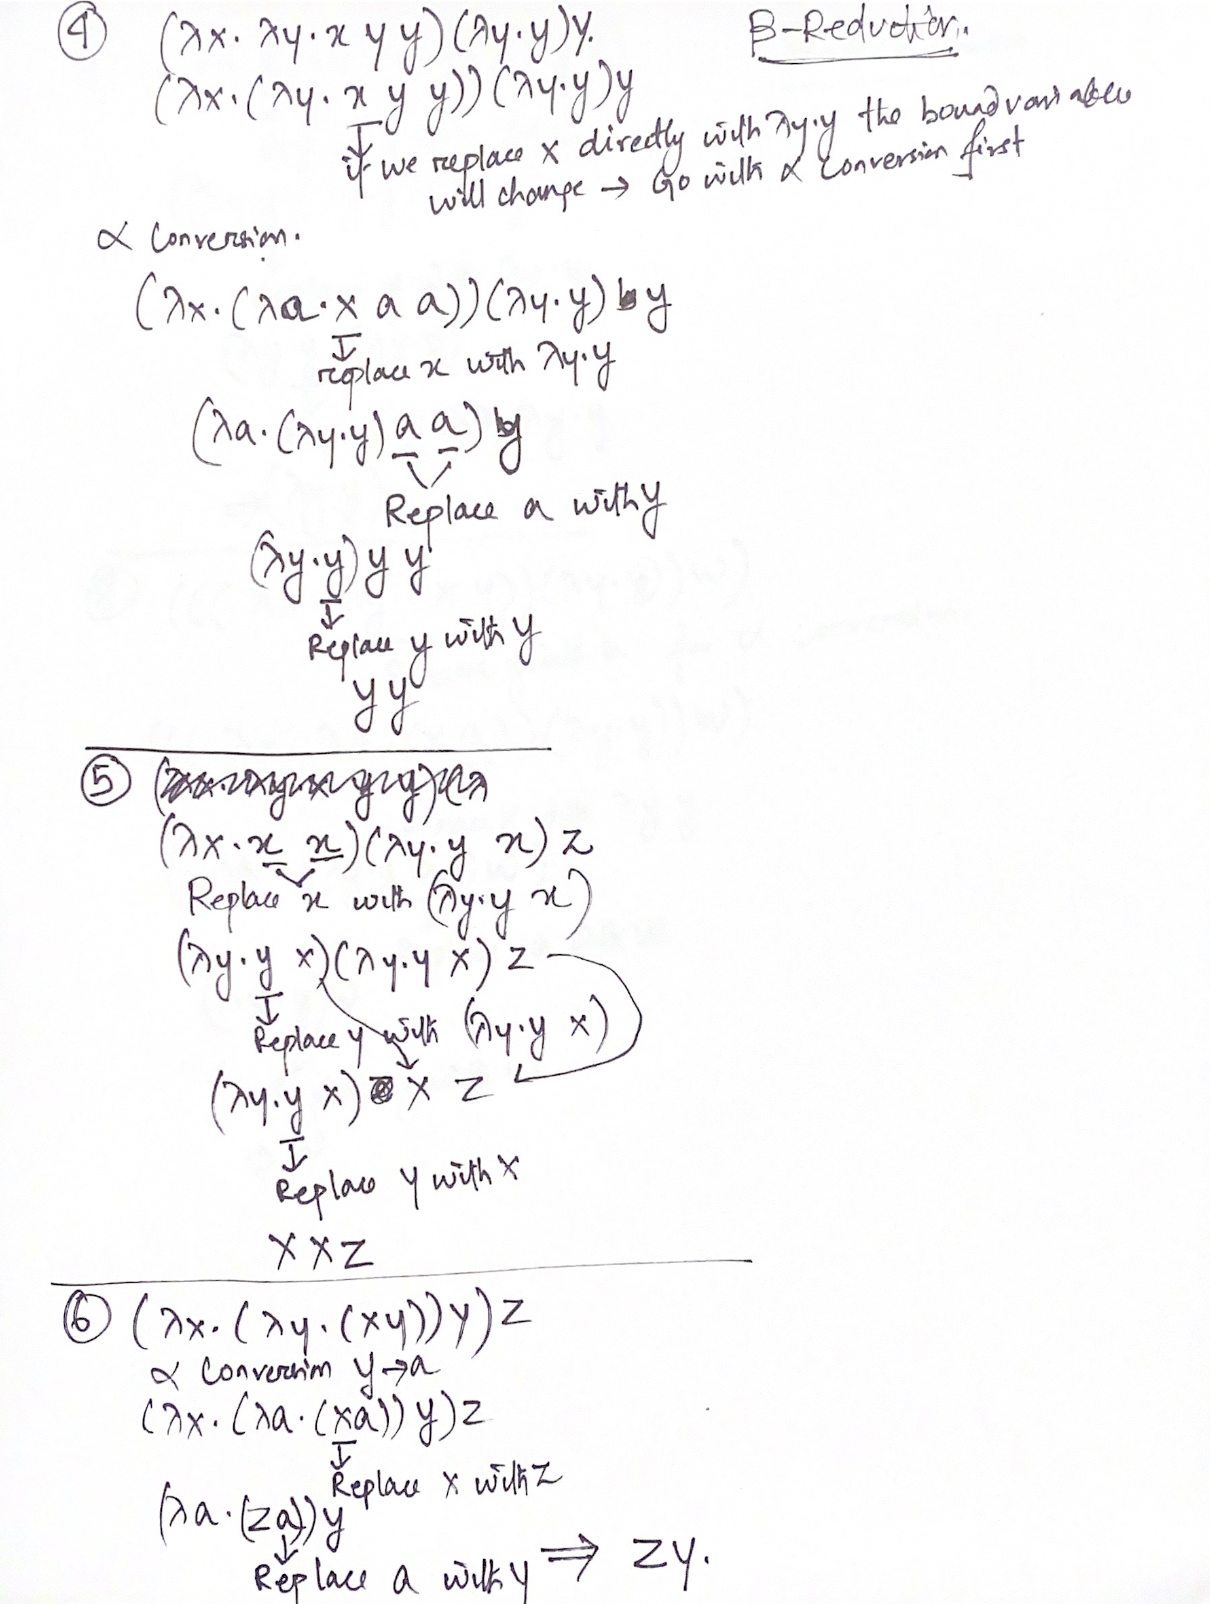 ④ (λx. λy. x y y)(λy.y)y.
β-Reduction.
(λx.(λy. x y y))(λy.y)y
if we replace x directly with λy.y the bound variables
will change → Go with α Conversion first
α Conversion.
(λx.(λa.x a a))(λy.y) y
replace x with λy.y
(λa.(λy.y) a a) y
Replace a with y
(λy.y) y y
Replace y with y
y y
⑤
(λx.x x)(λy.y x) z
Replace x with (λy.y x)
(λy.y x)(λy.y x) z
Replace y with (λy.y x)
(λy.y x) x z
Replace y with x
x x z
⑥ (λx.(λy.(xy))y)z
α Conversion y→a
(λx.(λa.(xa))y)z
Replace x with z
(λa.(za))y
Replace a with y ⇒ zy.